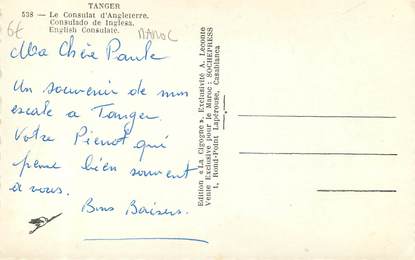 TANGER
538 — Le Consulat d'Angleterre.
Consulado de Inglesa.
English Consulate.
6€
MAROC
Ma Chère Paule
Un souvenir de mon
escale à Tanger.
Votre Pierrot qui
pense bien souvent
à vous.
Bons Baisers.
Edition « La Cigogne », Exclusivité A. Lecomte
Vente Exclusive pour le Maroc : SOCHEPRESS
1, Rond-Point Lapérouse, Casablanca